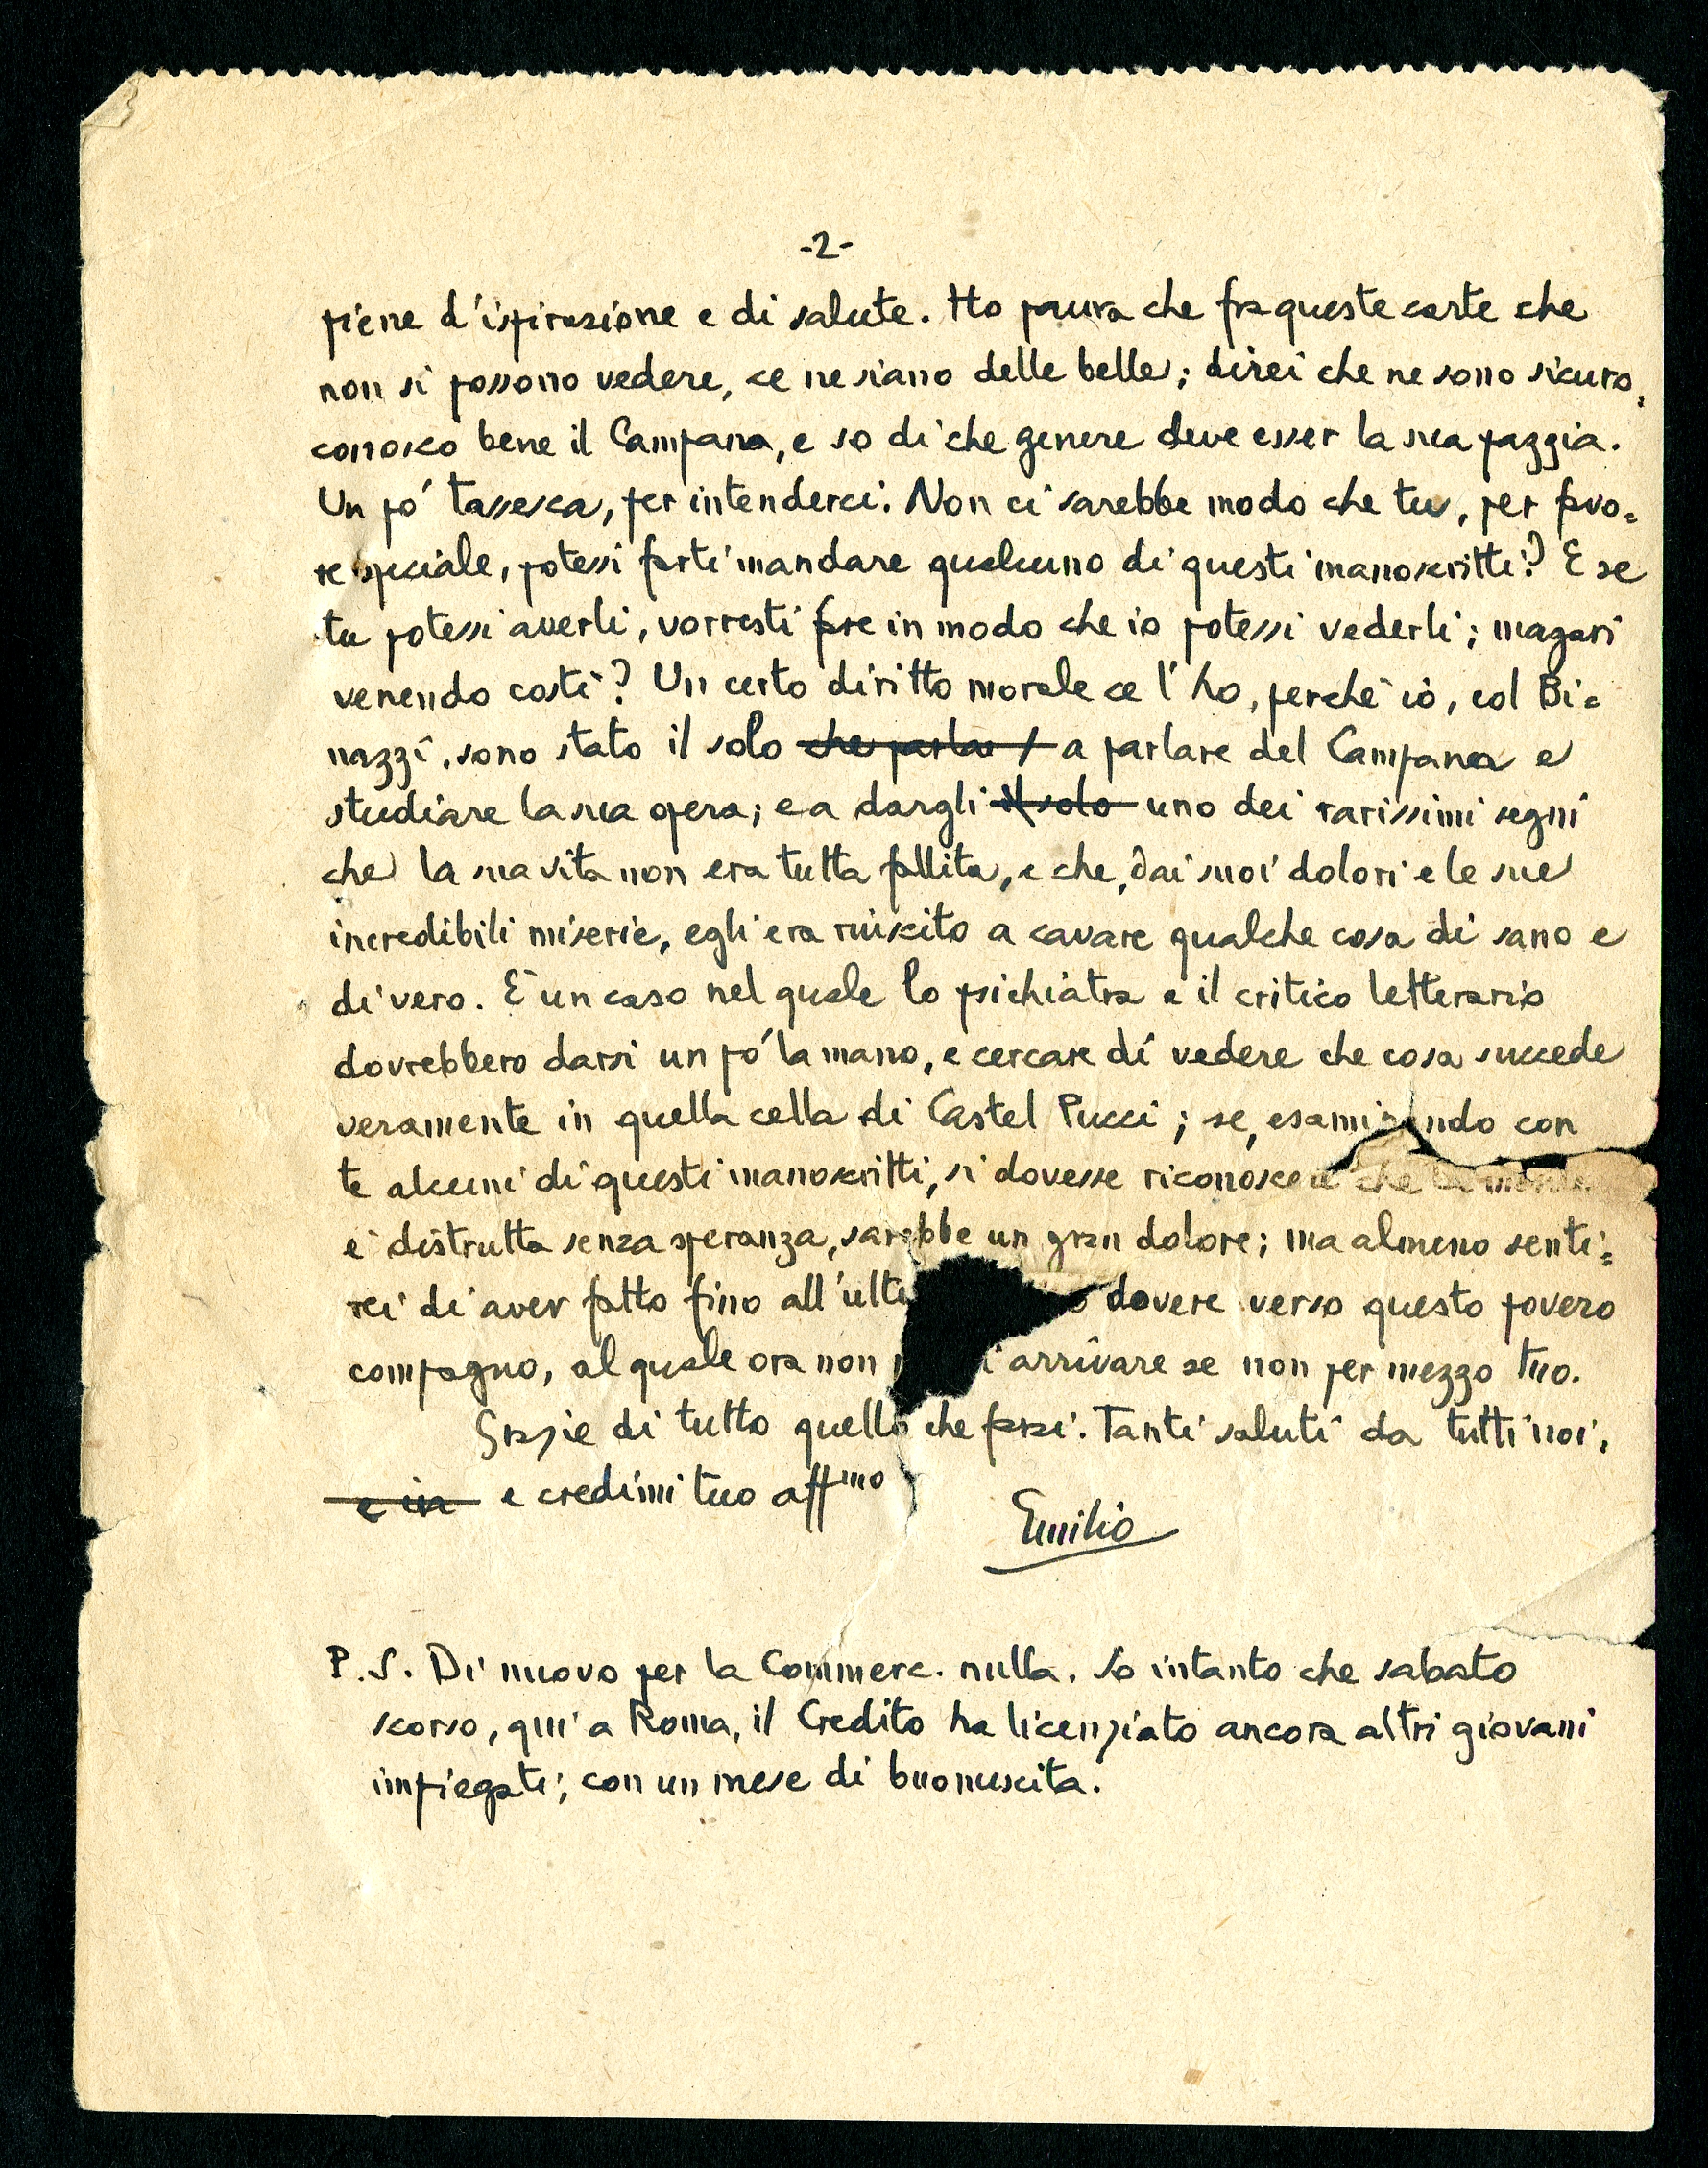 -2-
piene d'ispirazione e di salute. Ho paura che fra queste carte che
non si possono vedere, ce ne siano delle belle; direi che ne sono sicuro,
conosco bene il Campana, e so di che genere deve esser la sua pazzia.
Un pó tassesca, per intenderci. Non ci sarebbe modo che tu, per favo=
re speciale, potessi farti mandare qualcuno di questi manoscritti? E se
tu potessi averli, vorresti fare in modo che io potessi vederli; magari
venendo costì? Un certo diritto morale ce l'ho, perchè io, col Bi=
nazzi, sono stato il solo che parlas a parlare del Campana e
studiare la sua opera; e a dargli il solo uno dei rarissimi segni
che la sua vita non era tutta fallita, e che, dai suoi dolori e le sue
incredibili miserie, egli era riuscito a cavare qualche cosa di sano e
di vero. È un caso nel quale lo psichiatra e il critico letterario
dovrebbero darsi un pó la mano, e cercare di vedere che cosa succede
veramente in quella cella di Castel Pucci; se, esaminando con
te alcuni di questi manoscritti, si dovesse riconoscere che la mente
è distrutta senza speranza, sarebbe un gran dolore; ma almeno senti=
rei di aver fatto fino all'ulti dovere verso questo povero
compagno, al quale ora non arrivare se non per mezzo tuo.
Grazie di tutto quello che farai. Tanti saluti da tutti noi,
e in e credimi tuo affmo
Emilio
P.S. Di nuovo per la Commerc. nulla. So intanto che sabato
scorso, qui a Roma, il Credito ha licenziato ancora altri giovani
impiegati; con un mese di buonuscita.